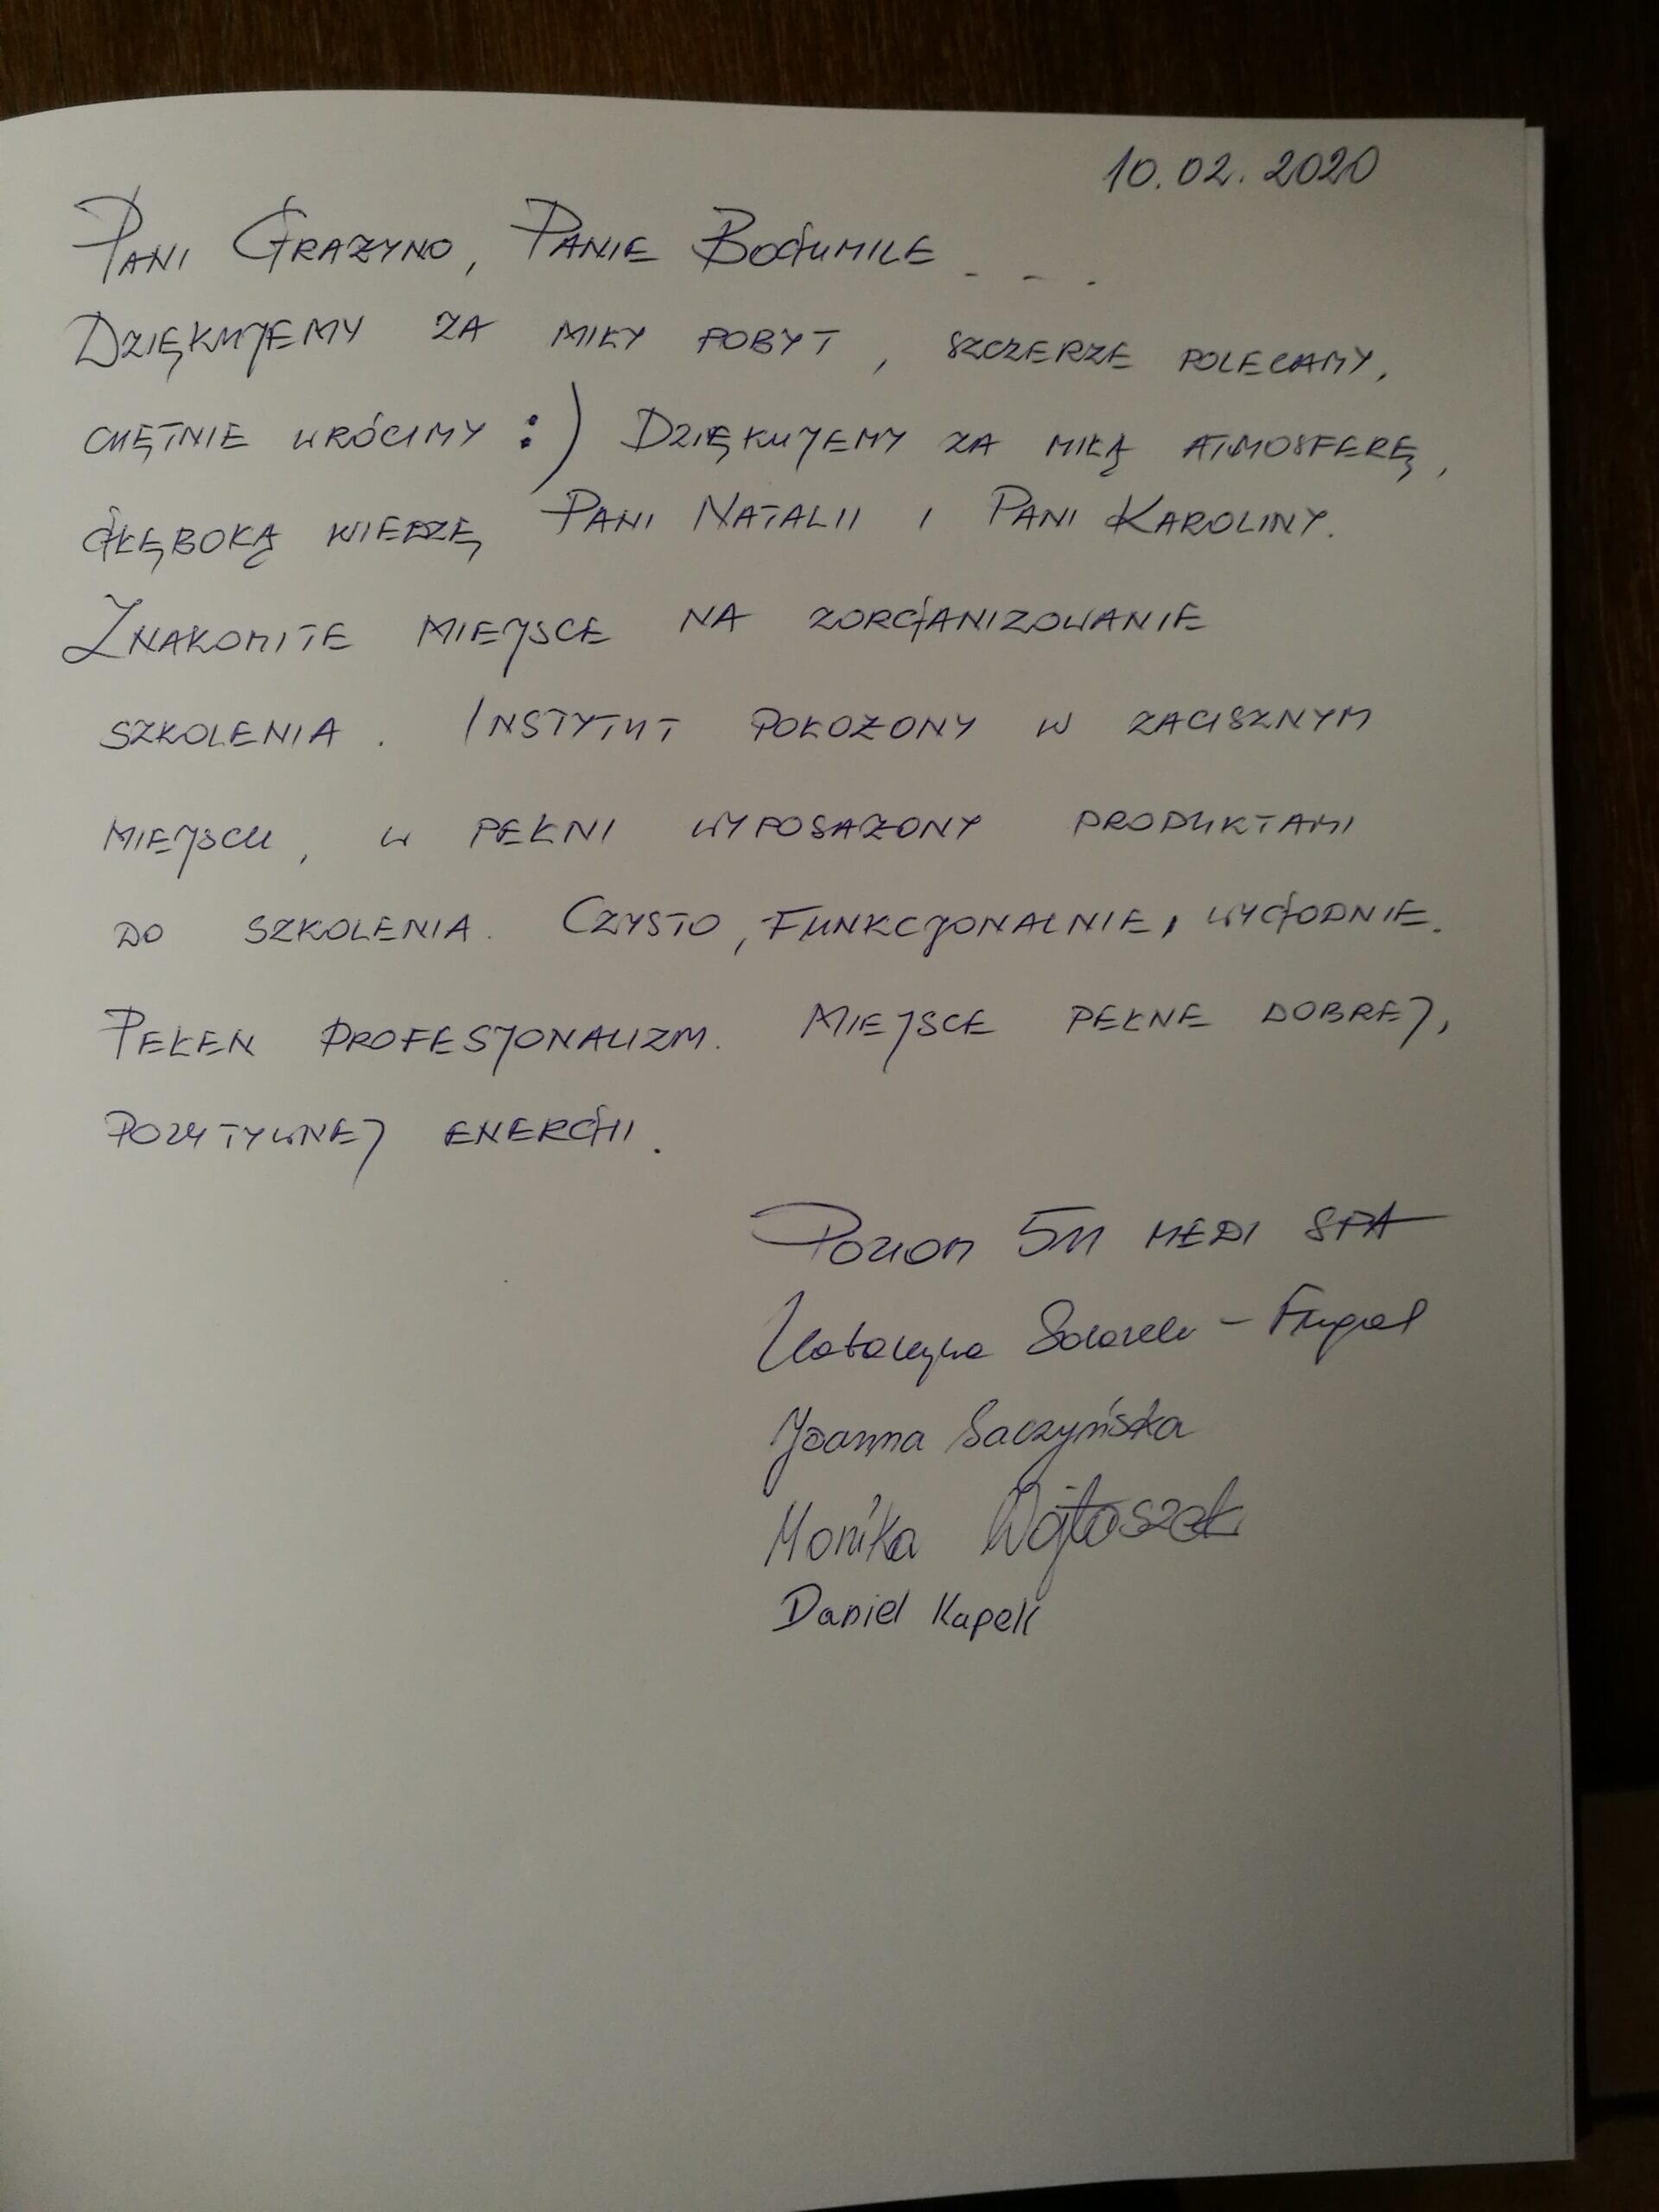 10.02.2020
PANI GRAŻYNO, PANIE BOGUMILE...
DZIĘKUJEMY ZA MIŁY POBYT, SZCZERZE POLECAMY,
CHĘTNIE WRÓCIMY :) DZIĘKUJEMY ZA MIŁĄ ATMOSFERĘ,
GŁĘBOKĄ WIEDZĘ PANI NATALII I PANI KAROLINY.
ZNAKOMITE MIEJSCE NA ZORGANIZOWANIE
SZKOLENIA. INSTYTUT POŁOŻONY W ZACISZNYM
MIEJSCU, W PEŁNI WYPOSAŻONY PRODUKTAMI
DO SZKOLENIA. CZYSTO, FUNKCJONALNIE, WYGODNIE.
PEŁEN PROFESJONALIZM. MIEJSCE PEŁNE DOBREJ,
POZYTYWNEJ ENERGII.
POZIOM 511 MEDI SPA
Katarzyna
Joanna Saczyńska
Monika Wojtaszek
Daniel Kapek